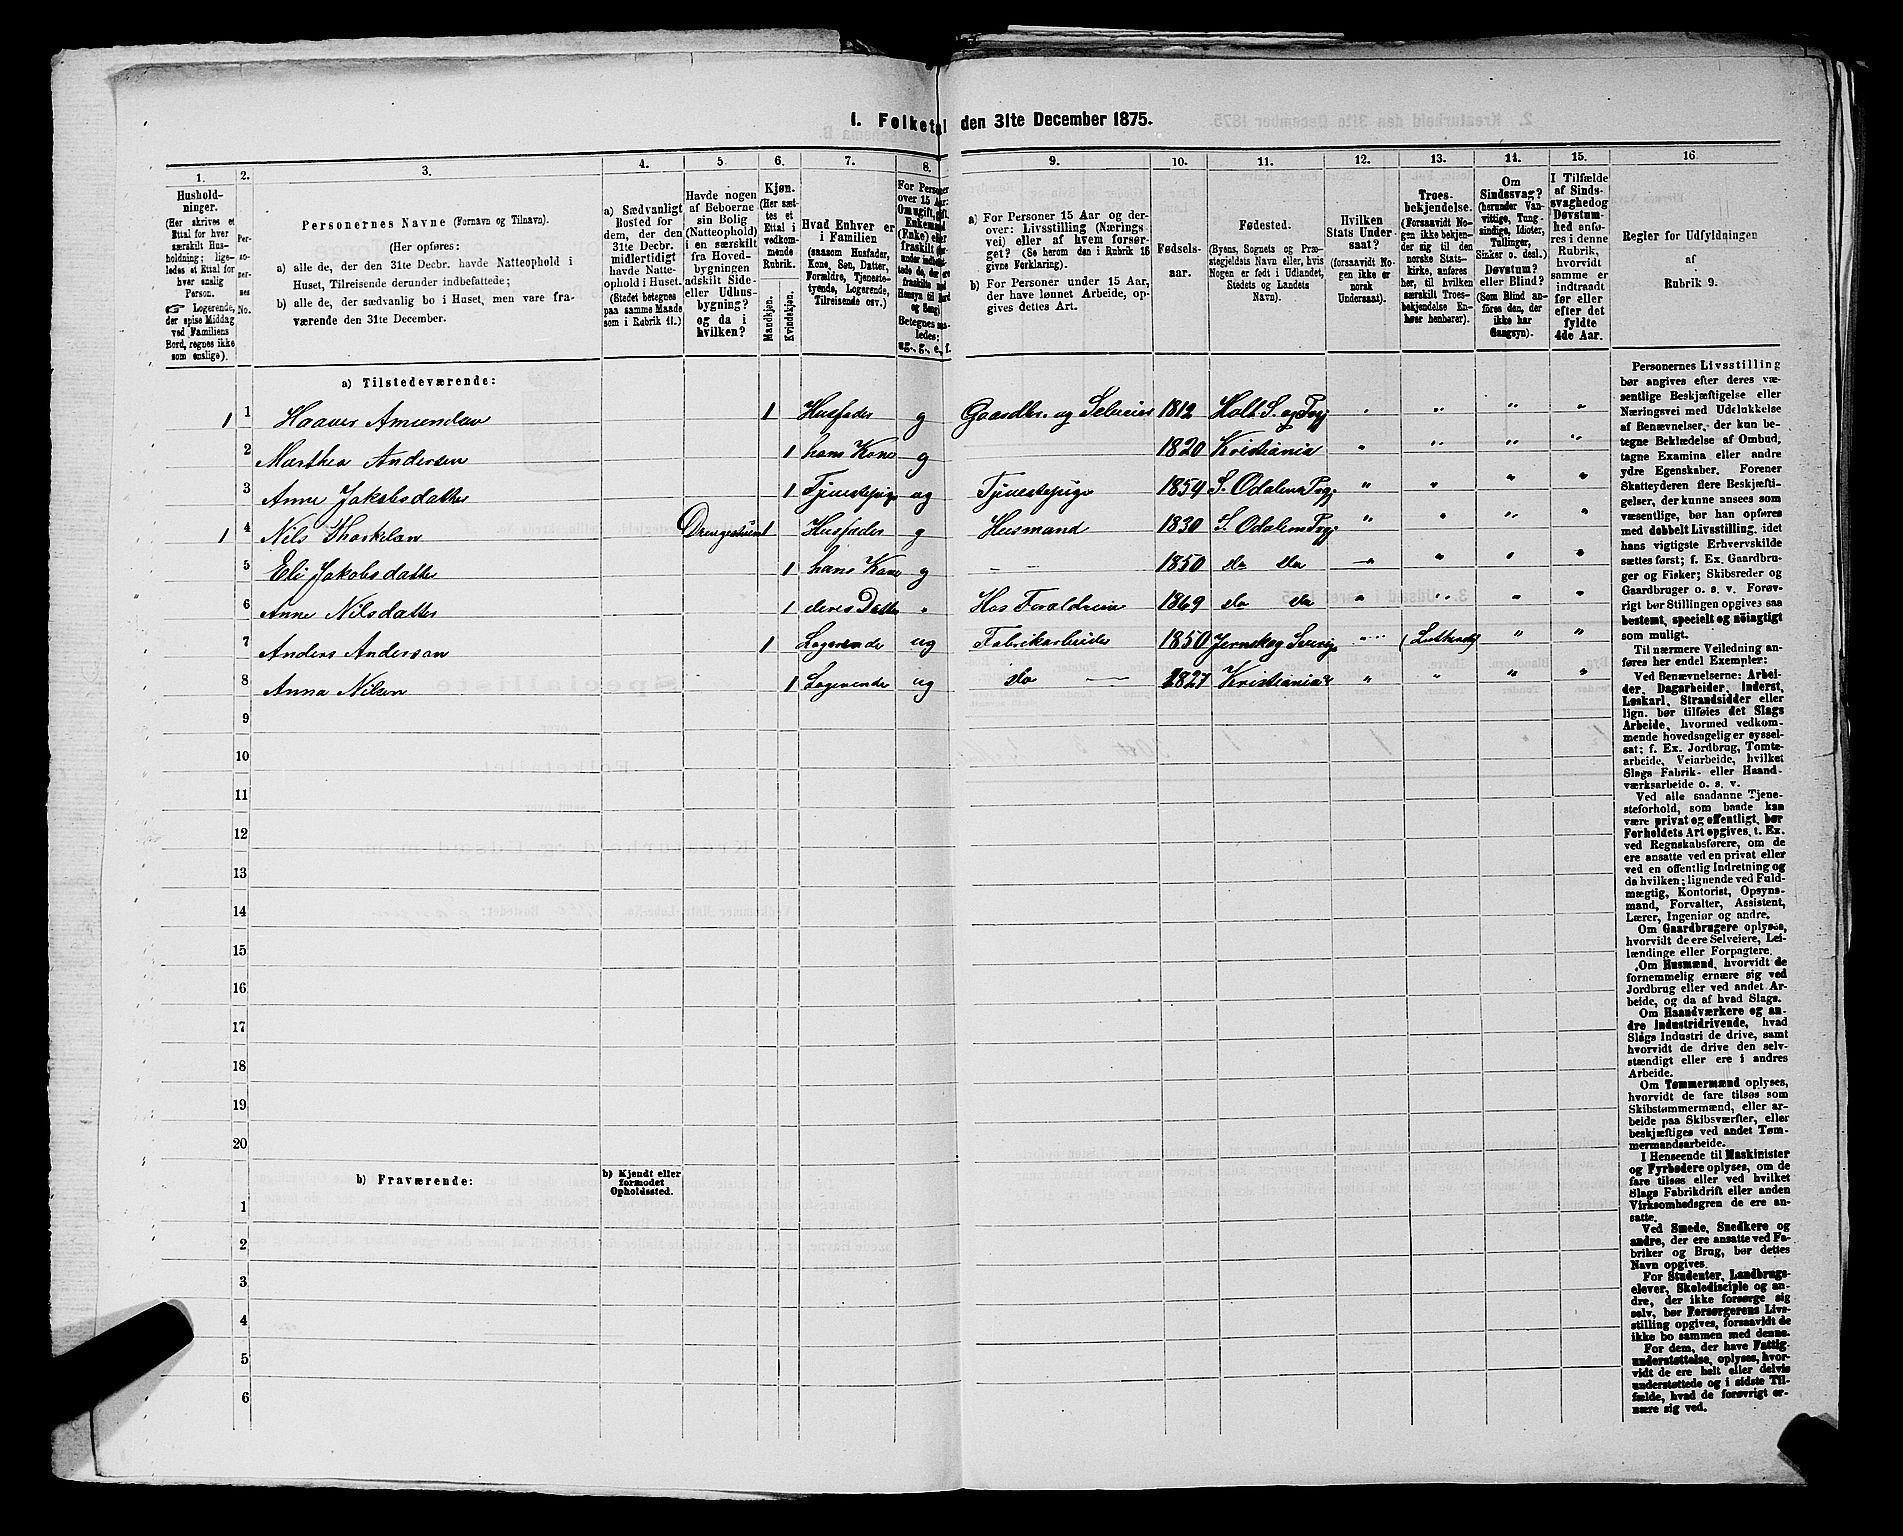 1. Folketal den 31te December 1875.
1. 2. 3. 4. 5. 6. 7. 8. 9. 10. 11. 12. 13. 14. 15. 16
Husholdninger.
(Her skrives et
Ettal for hver
særskilt Husholdning;
ligeledes et Ettal for
hver enslig
Person.
☞ Logerende,
der spise Middag
ved Familiens
Bord, regnes ikke
som enslige).
Personernes No.
Personernes Navne (Fornavn og Tilnavn).
(Her opføres:
a) alle de, der den 31te Decbr. havde Natteophold i
Huset, Tilreisende derunder indbefattede;
b) alle de, der sædvanlig bo i Huset, men vare fraværende
den 31te December.
a) Sædvanligt
Bosted for
dem, der den
31te Decbr.
midlertidigt
havde Natteophold
i Huset.
(Stedet betegnes
paa samme Maade
som i Rubrik 11.)
Havde nogen
af Beboerne
sin Bolig
(Natteophold)
i en særskilt
fra Hovedbygningen
adskilt Side-
eller Udhusbygning?
og da i
hvilken?
Kjøn.
(Her sættes
et
Ettal i
vedkommende
Rubrik.
Mandkjøn.
Kvindekjøn.
Hvad Enhver er
i Familien
(saasom Husfader,
Kone, Søn, Datter,
Forældre, Tjenestetyende,
Logerende,
Tilreisende osv.)
For Personer
over 15 Aar:
Om ugift, gift,
Enkemand
(Enke) eller
fraskilt
Betegnes saaledes:
ug., g., e., f.
a) For Personer 15 Aar og derover:
Livsstilling (Næringsvei)
eller af hvem forsørget?
(Se herom den i Rubrik 16
givne Forklaring).
b) For Personer under 15 Aar,
der have lønnet Arbeide, opgives
dettes Art.
Fødselsaar.
Fødested.
(Byens, Sognets og Præstegjeldets
Navn eller, hvis
Nogen er født i Udlandet,
Stedets og Landets
Navn).
Hvilken
Stats Undersaat?
(forsaavidt Nogen
ikke er
norsk
Undersaat).
Troesbekjendelse.
(Forsaavidt Nogen
ikke bekjender
sig til den
norske Statskirke,
anføres
her, til hvilken
særskilt Troesbekjendelse
Enhver
henhører).
Om
Sindssvag?
(herunder Vanvittige,
Tungsindige,
Idioter,
Tullinger,
Sinker o. desl.)
Døvstum?
eller Blind?
(Som Blind anføres
den, der
ikke har
Gangsyn).
I Tilfælde
af Sindssvaghed
og
Døvstumhed
anføres
i denne
Rubrik,
hvorvidt
samme er
indtraadt
før eller
efter det
fyldte
4de Aar.
Regler for Udfyldningen
af
Rubrik 9.
a) Tilstedeværende:
1 1 Haaver Amundsen 1 Husfader g Gaardbr. og Selveier 1812 Holt S. og Prgj " " " "
2 Marthea Andersen 1 hans Kone g 1820 Kristiania " " " "
3 Anne Jakobsdatter 1 Tjenestepige ug Tjenestepige 1854 S. Odalens Prgj " " " "
1 4 Nils Thorkelsen Drengestuen 1 Husfader g Husmand 1830 S. Odalens Prgj " " " "
5 Eli Jakobsdatter 1 hans Kone g — — 1850 do do " " " "
6 Anne Nilsdatter 1 deres Datter " Hos Forældrene 1869 do do " " " "
7 Anders Anderson 1 Logerende ug Fabrikarbeider 1850 Jernskog Sverig " " "
8 Anna Nilsen 1 Logerende ug do — 1827 Kristiania " " " "
9
10
11
12
13
14
15
16
17
18
19
20
b) Fraværende:
b) Kjendt eller
formodet
Opholdssted.
1
2
3
4
5
6
Personernes Livsstilling
bør angives efter deres væsentlige
Beskjæftigelse eller
Næringsvei med Udelukkelse
af Benævnelser, der kun betegne
Beklædelse af Ombud,
tagne Examina eller andre
ydre Egenskaber. Forener
Skatteyderen flere Beskjæftigelser,
der kunne ansees som
væsentlige, bør han opføres
med dobbelt Livsstilling, idet
hans vigtigste Erhvervskilde
sættes først; f. Ex. Gaardbruger
og Fisker; Skibsreder og
Gaardbruger o. s. v. Forøvrigt
bør Stillingen opgives saa
bestemt, specielt og nøiagtigt
som muligt.
Til nærmere Veiledning anføres
her endel Exempler:
Ved Benævnelserne: Arbeider,
Dagarbeider, Inderst,
Løskarl, Strandsidder eller
lign. bør tilføies det Slags
Arbeide, hvormed vedkommende
hovedsagelig er sysselsat;
f. Ex. Jordbrug, Tomtearbeide,
Veiarbeide, hvilket
Slags Fabrik- eller Haandværksarbeide
o. s. v.
Ved alle saadanne Tjenesteforhold,
som baade kan
være privat og offentligt, bør
Forholdets Art opgives, t. Ex.
ved Regnskabsførere, om de
ere ansatte ved en privat eller
ved en offentlig Indretning og
da hvilken; lignende ved Fuldmægtig,
Kontorist, Opsynsmand,
Forvalter, Assistent,
Lærer, Ingeniør og andre.
Om Gaardbrugere oplyses,
hvorvidt de ere Selveiere, Leilændinge
eller Forpagtere.
Om Husmænd, hvorvidt de
fornemmelig ernære sig ved
Jordbrug eller ved andet Arbeide,
og da af hvad Slags.
Om Haandværkere og andre
Industridrivende, hvad
Slags Industri de drive, samt
hvorvidt de drive den selvstændigt
eller ere i andres
Arbeide.
Om Tømmermænd oplyses,
hvorvidt de fare tilsøs som
Skibstømmermænd, eller arbeide
paa Skibsværfter, eller
beskjæftiges ved andet Tømmermandsarbeide.
I Henseende til Maskinister
og Fyrbødere oplyses, om de
fare tilsøs eller ved hvilket
Slags Fabrikdrift eller anden
Virksomhedsgren de ere ansatte.
Ved Smede, Snedkere og
andre, der ere ansatte ved Fabriker
og Brug, bør dettes
Navn opgives.
For Studenter, Landbrugselever,
Skoledisciple og andre,
der ikke forsørge sig
selv, bør Forsørgerens Livsstilling
opgives, forsaavidt de
ikke bo sammen med denne.
For dem, der have Fattigunderstøttelse,
oplyses, hvorvidt
de ere helt eller delvis
understøttede og i sidste Tilfælde,
hvad de forøvrigt ernære
sig ved.